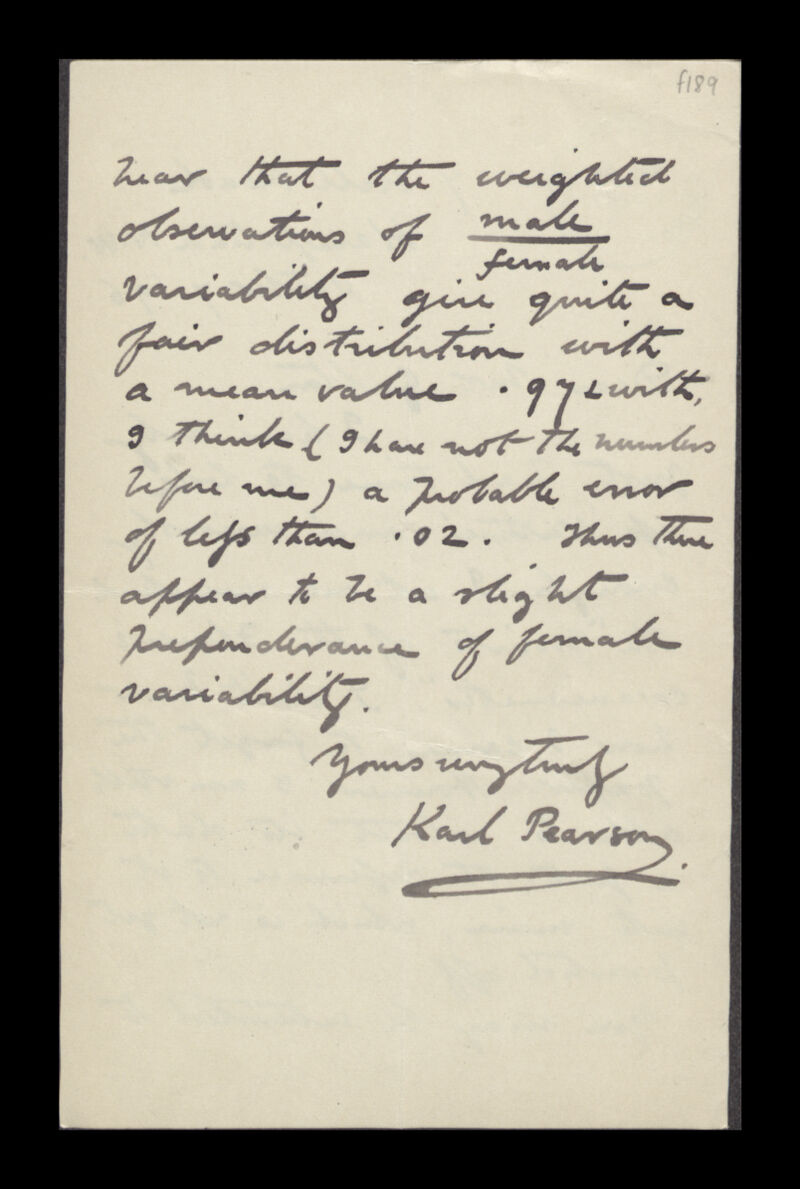 f189
hear that the weighted
observations of male
female
variability give quite a
fair distribution with
a mean value .972 with,
I think (I have not the numbers
before me) a probable error
of less than .02. Thus there
appear to be a slight
preponderance of female
variability.
Yours very truly
Karl Pearson.